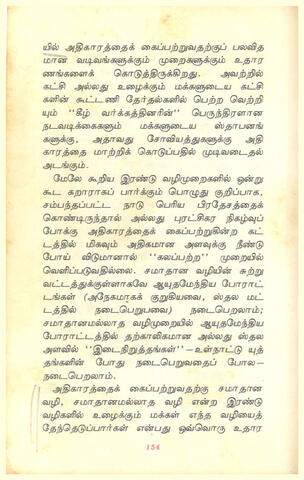 யில் அதிகாரத்தைக் கைப்பற்றுவதற்குப் பலவித
மான வடிவங்களுக்கும் முறைகளுக்கும் உதார
ணங்களைக் கொடுத்திருக்கிறது. அவற்றில்
கட்சி அல்லது உழைக்கும் மக்களுடைய கட்சி
களின் கூட்டணி தேர்தல்களில் பெற்ற வெற்றி
யும் "கீழ் வர்க்கத்தினரின்" பெருந்திரளான
நடவடிக்கைகளும் மக்களுடைய ஸ்தாபனங்
களுக்கு, அதாவது சோவியத்துகளுக்கு அதி
காரத்தை மாற்றிக் கொடுப்பதில் முடிவடைதல்
அடங்கும்.
மேலே கூறிய இரண்டு வழிமுறைகளில் ஒன்று
கூட கறாராகப் பார்க்கும் பொழுது குறிப்பாக,
சம்பந்தப்பட்ட நாடு பெரிய பிரதேசத்தைக்
கொண்டிருந்தால் அல்லது புரட்சிகர நிகழ்வுப்
போக்கு அதிகாரத்தைக் கைப்பற்றுகின்ற கட்
டத்தில் மிகவும் அதிகமான அளவுக்கு நீண்டு
போய் விடுமானால் "கலப்பற்ற" முறையில்
வெளிப்படுவதில்லை. சமாதான வழியின் சுற்று
வட்டத்துக்குள்ளாகவே ஆயுதமேந்திய போராட்
டங்கள் (அநேகமாகக் குறுகியவை, ஸ்தல மட்
டத்தில் நடைபெறுபவை) நடைபெறலாம்;
சமாதானமல்லாத வழிமுறையில் ஆயுதமேந்திய
போராட்டத்தில் தற்காலிகமான அல்லது ஸ்தல
அளவில் "இடைநிறுத்தங்கள்"—உள்நாட்டு யுத்
தங்களின் போது நடைபெறுவதைப் போல—
நடைபெறலாம்.
அதிகாரத்தைக் கைப்பற்றுவதற்கு சமாதான
வழி, சமாதானமல்லாத வழி என்ற இரண்டு
வழிகளில் உழைக்கும் மக்கள் எந்த வழியைத்
தேர்ந்தெடுப்பார்கள் என்பது ஒவ்வொரு உதார
154